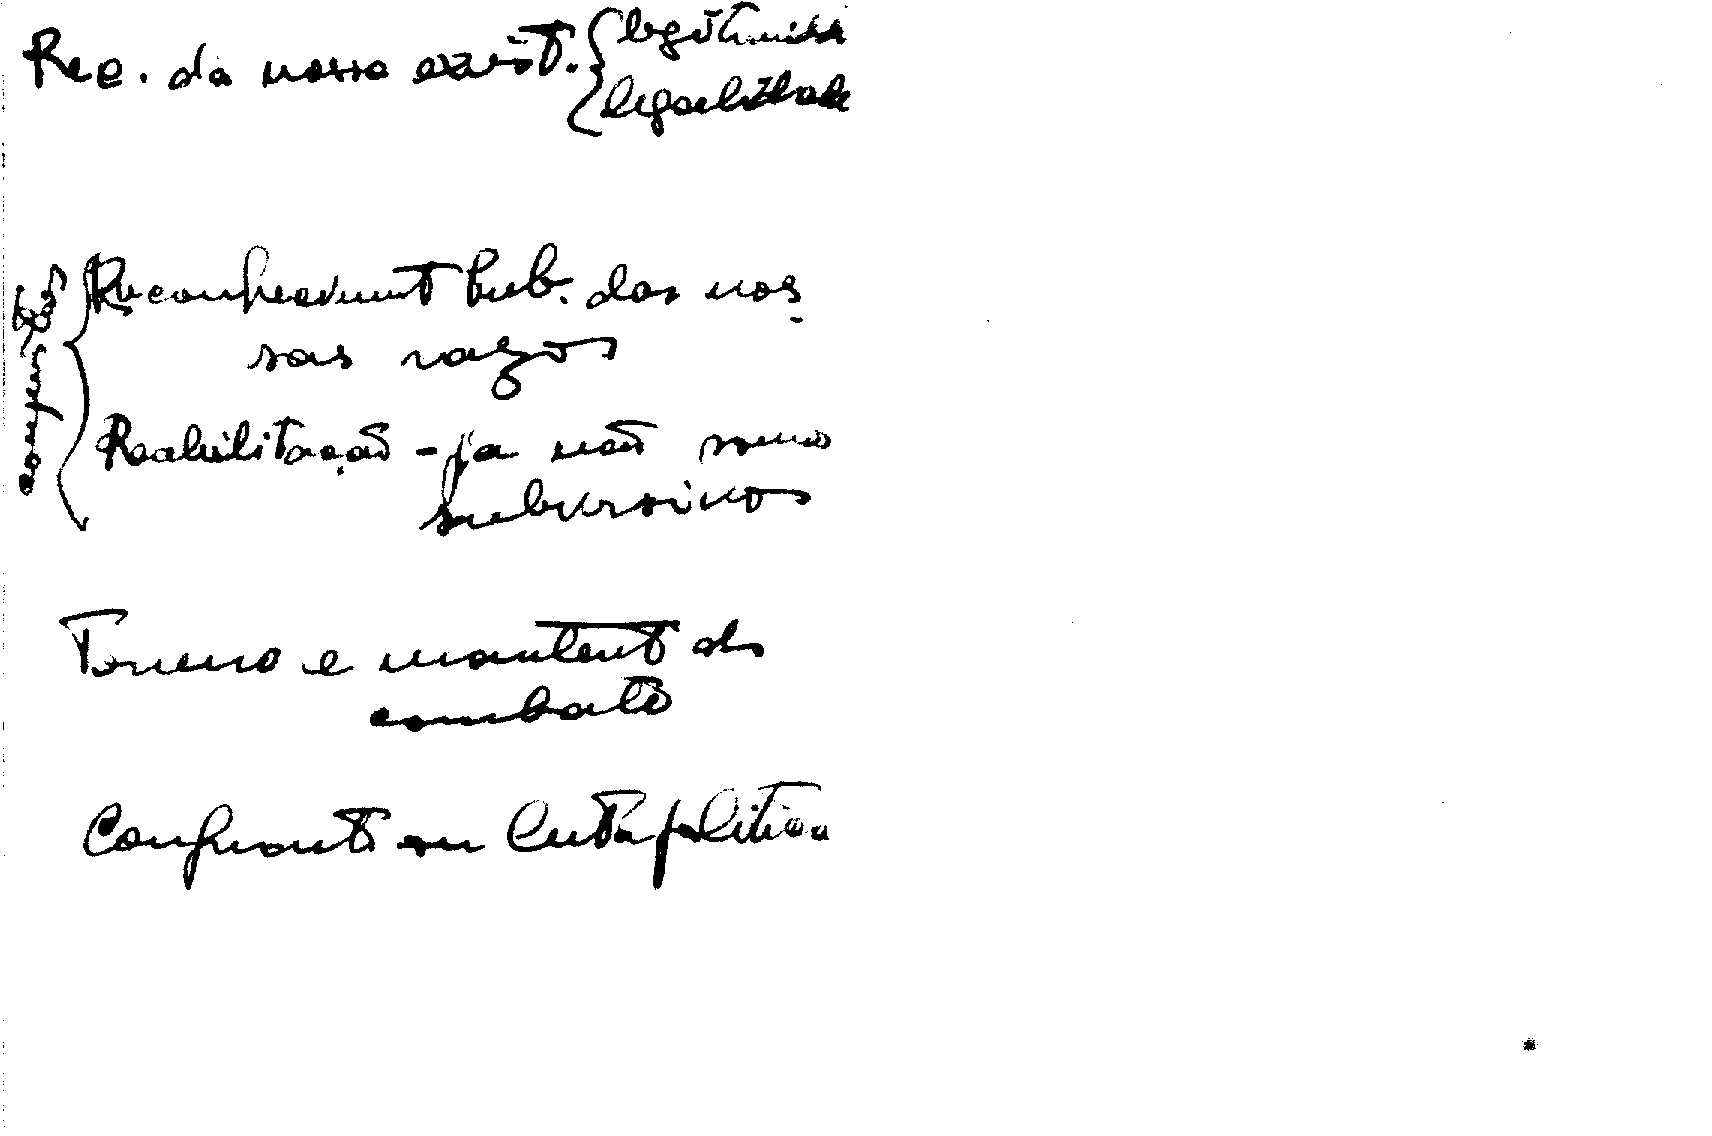 Rec. da nossa exist. { legitimida
legalidade
Reconheciment Pub. das nos-
sas razões
Reabilitação - já não somos
subversivos
Terreno e do
combate
Confronto em luta politica